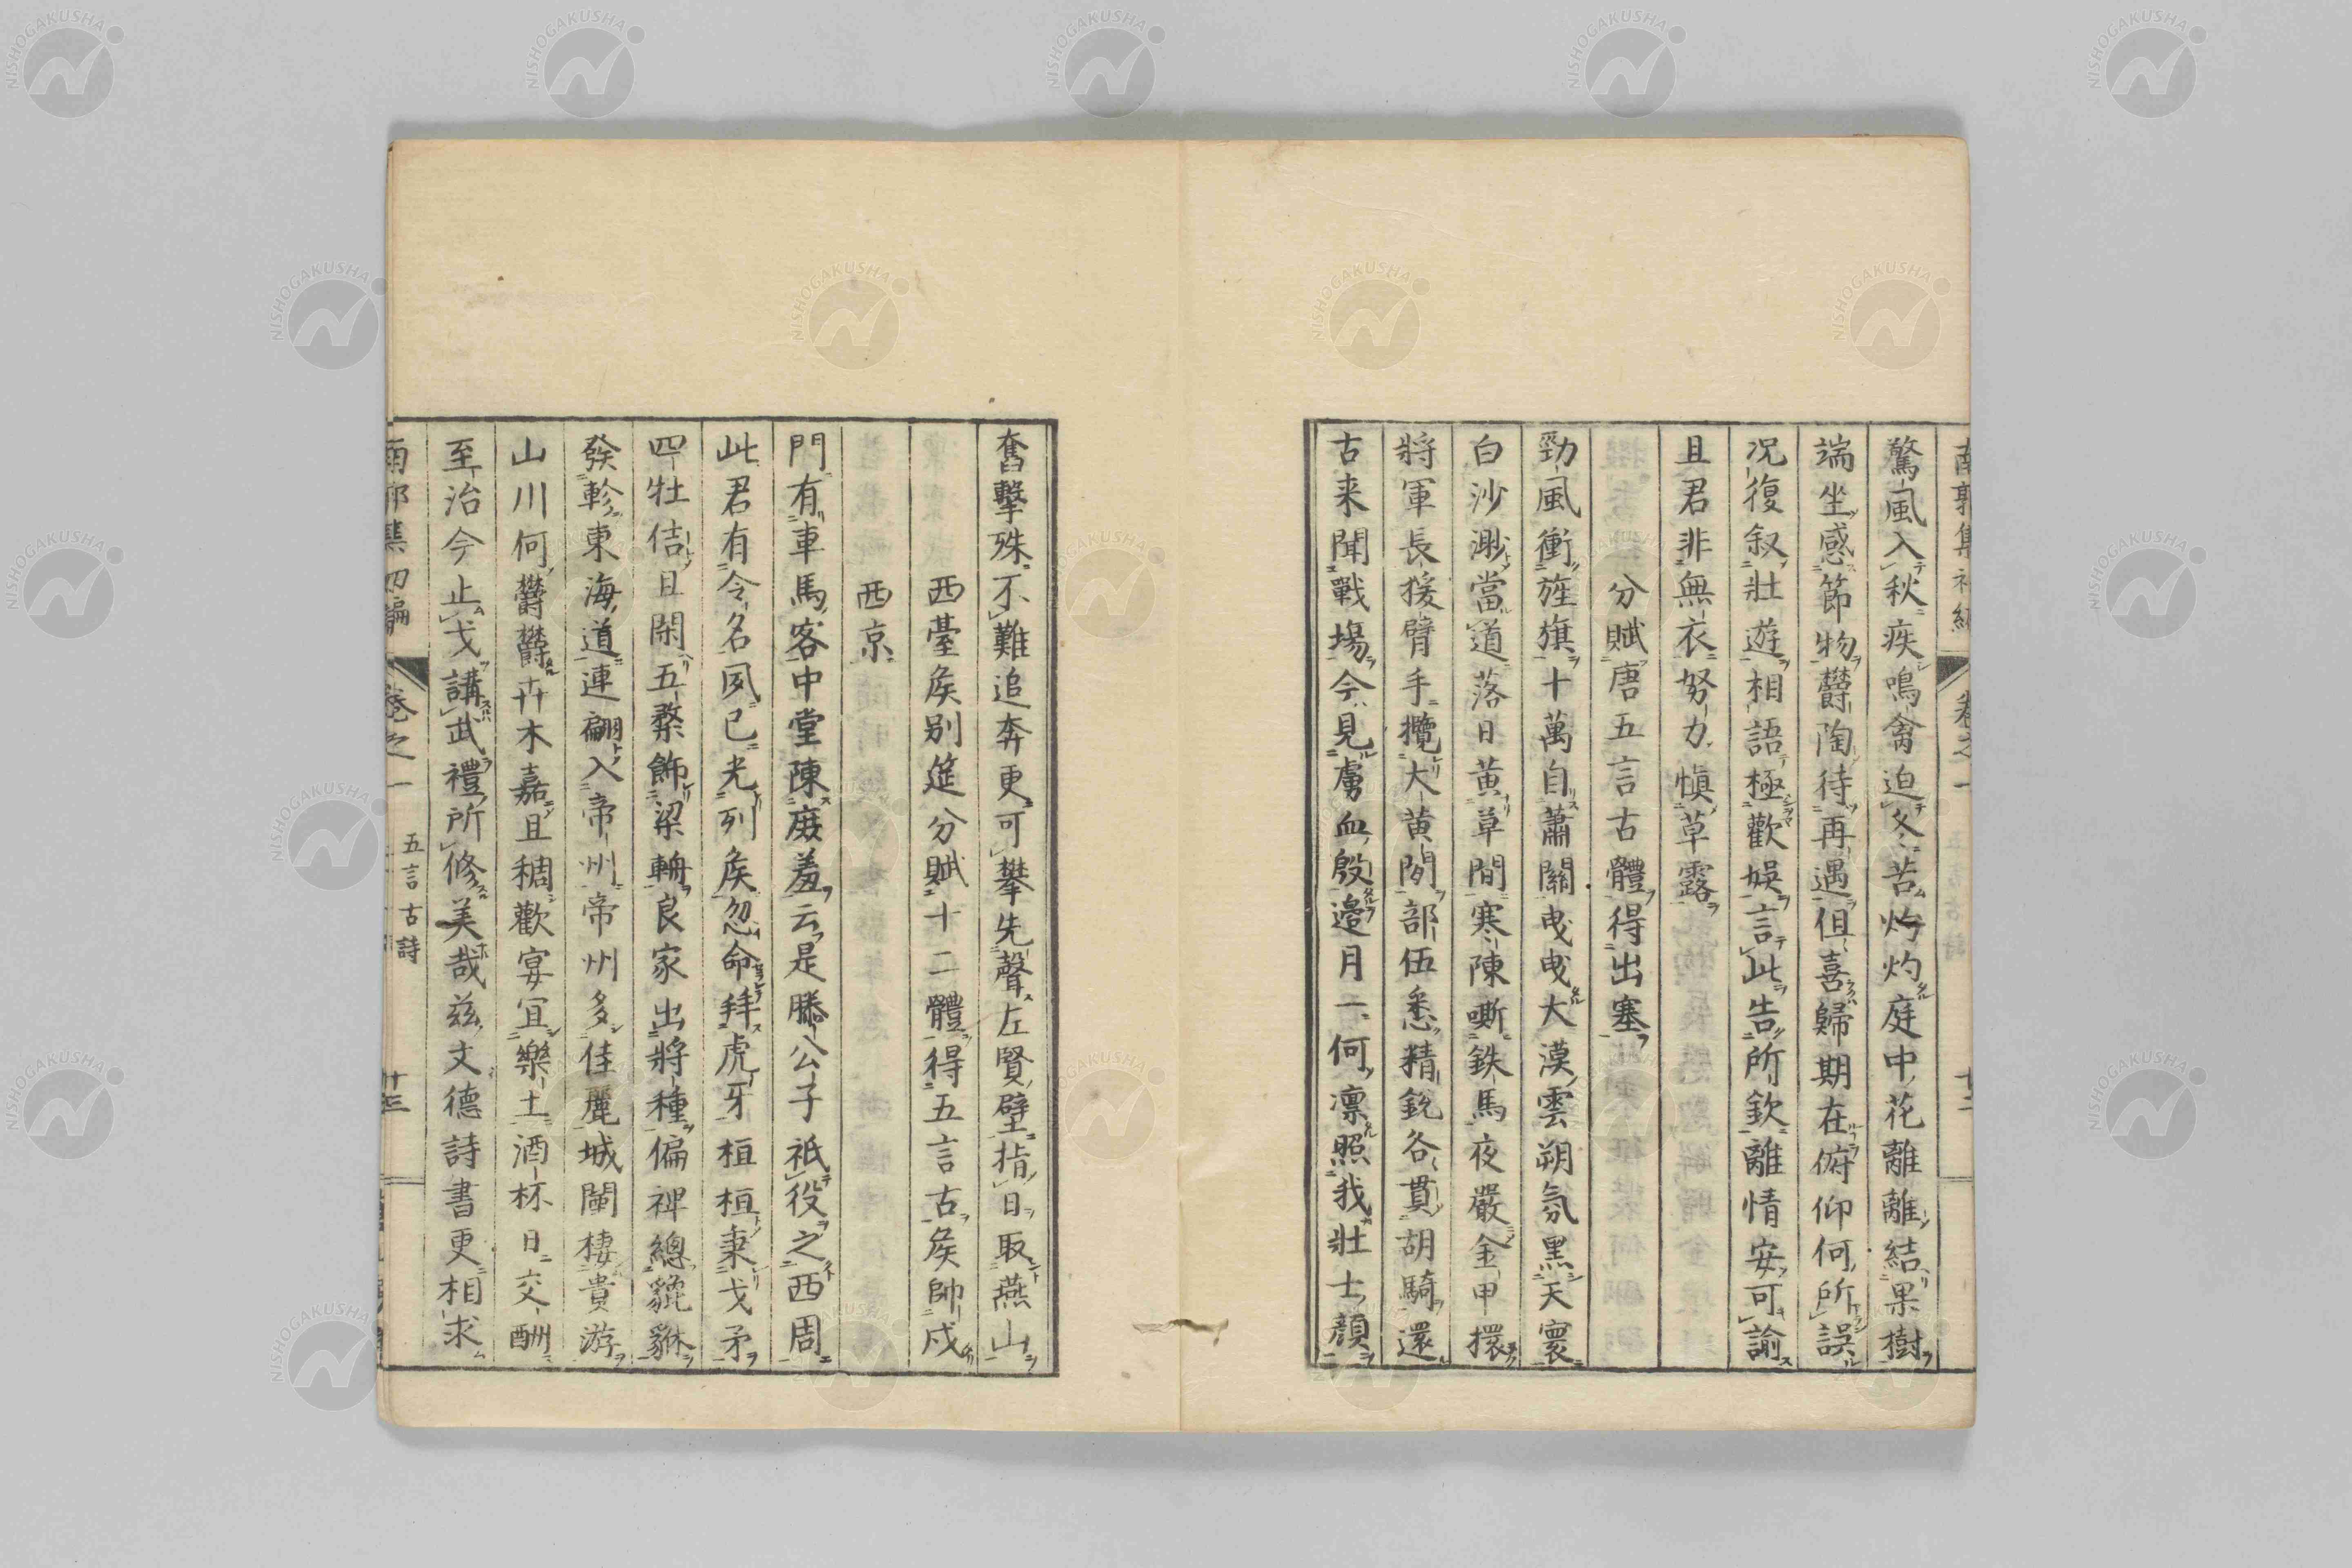 驚風入秋疾鳴禽迫冬苦灼灼庭中花離離結果樹
端坐感節物欝陶待再遇但喜歸期在俯仰何所誤
況復叙壯遊相語極歡娯言此告所欽離情安可諭
且君非無衣努力愼草露
分賦唐五言古體得出塞
勁風衝旌旗十萬自蕭關曳曳大漠雲朔氛黒天寰
白沙渺當道落日黄草間寒陳嘶鉄馬夜嚴金甲擐
將軍長援臂手攬大黄閒部伍悉精鋭各貫胡騎還
古来聞戰場今見虜血殷邉月一何凛照我壯士顔
奮擊殊不難追奔更可攀先聲左賢壁指日取燕山
西臺矦別筵分賦十二體得五言古矦帥戍
西京
門有車馬客中堂陳庶羞云是滕公子祇役之西周
此君有令名夙已光列矦忽命拜虎牙桓桓秉戈矛
四牡佶且閑五楘飾梁輈良家出將種偏裨總貔貅
發軫東海道連翩入帝州帝州多佳麗城闉棲貴游
山川何欝欝卉木嘉且稠歡宴宜樂土酒杯日交酬
至治今止戈講武禮所修美哉兹文德詩書更相求
卷之一
五言古詩
十三